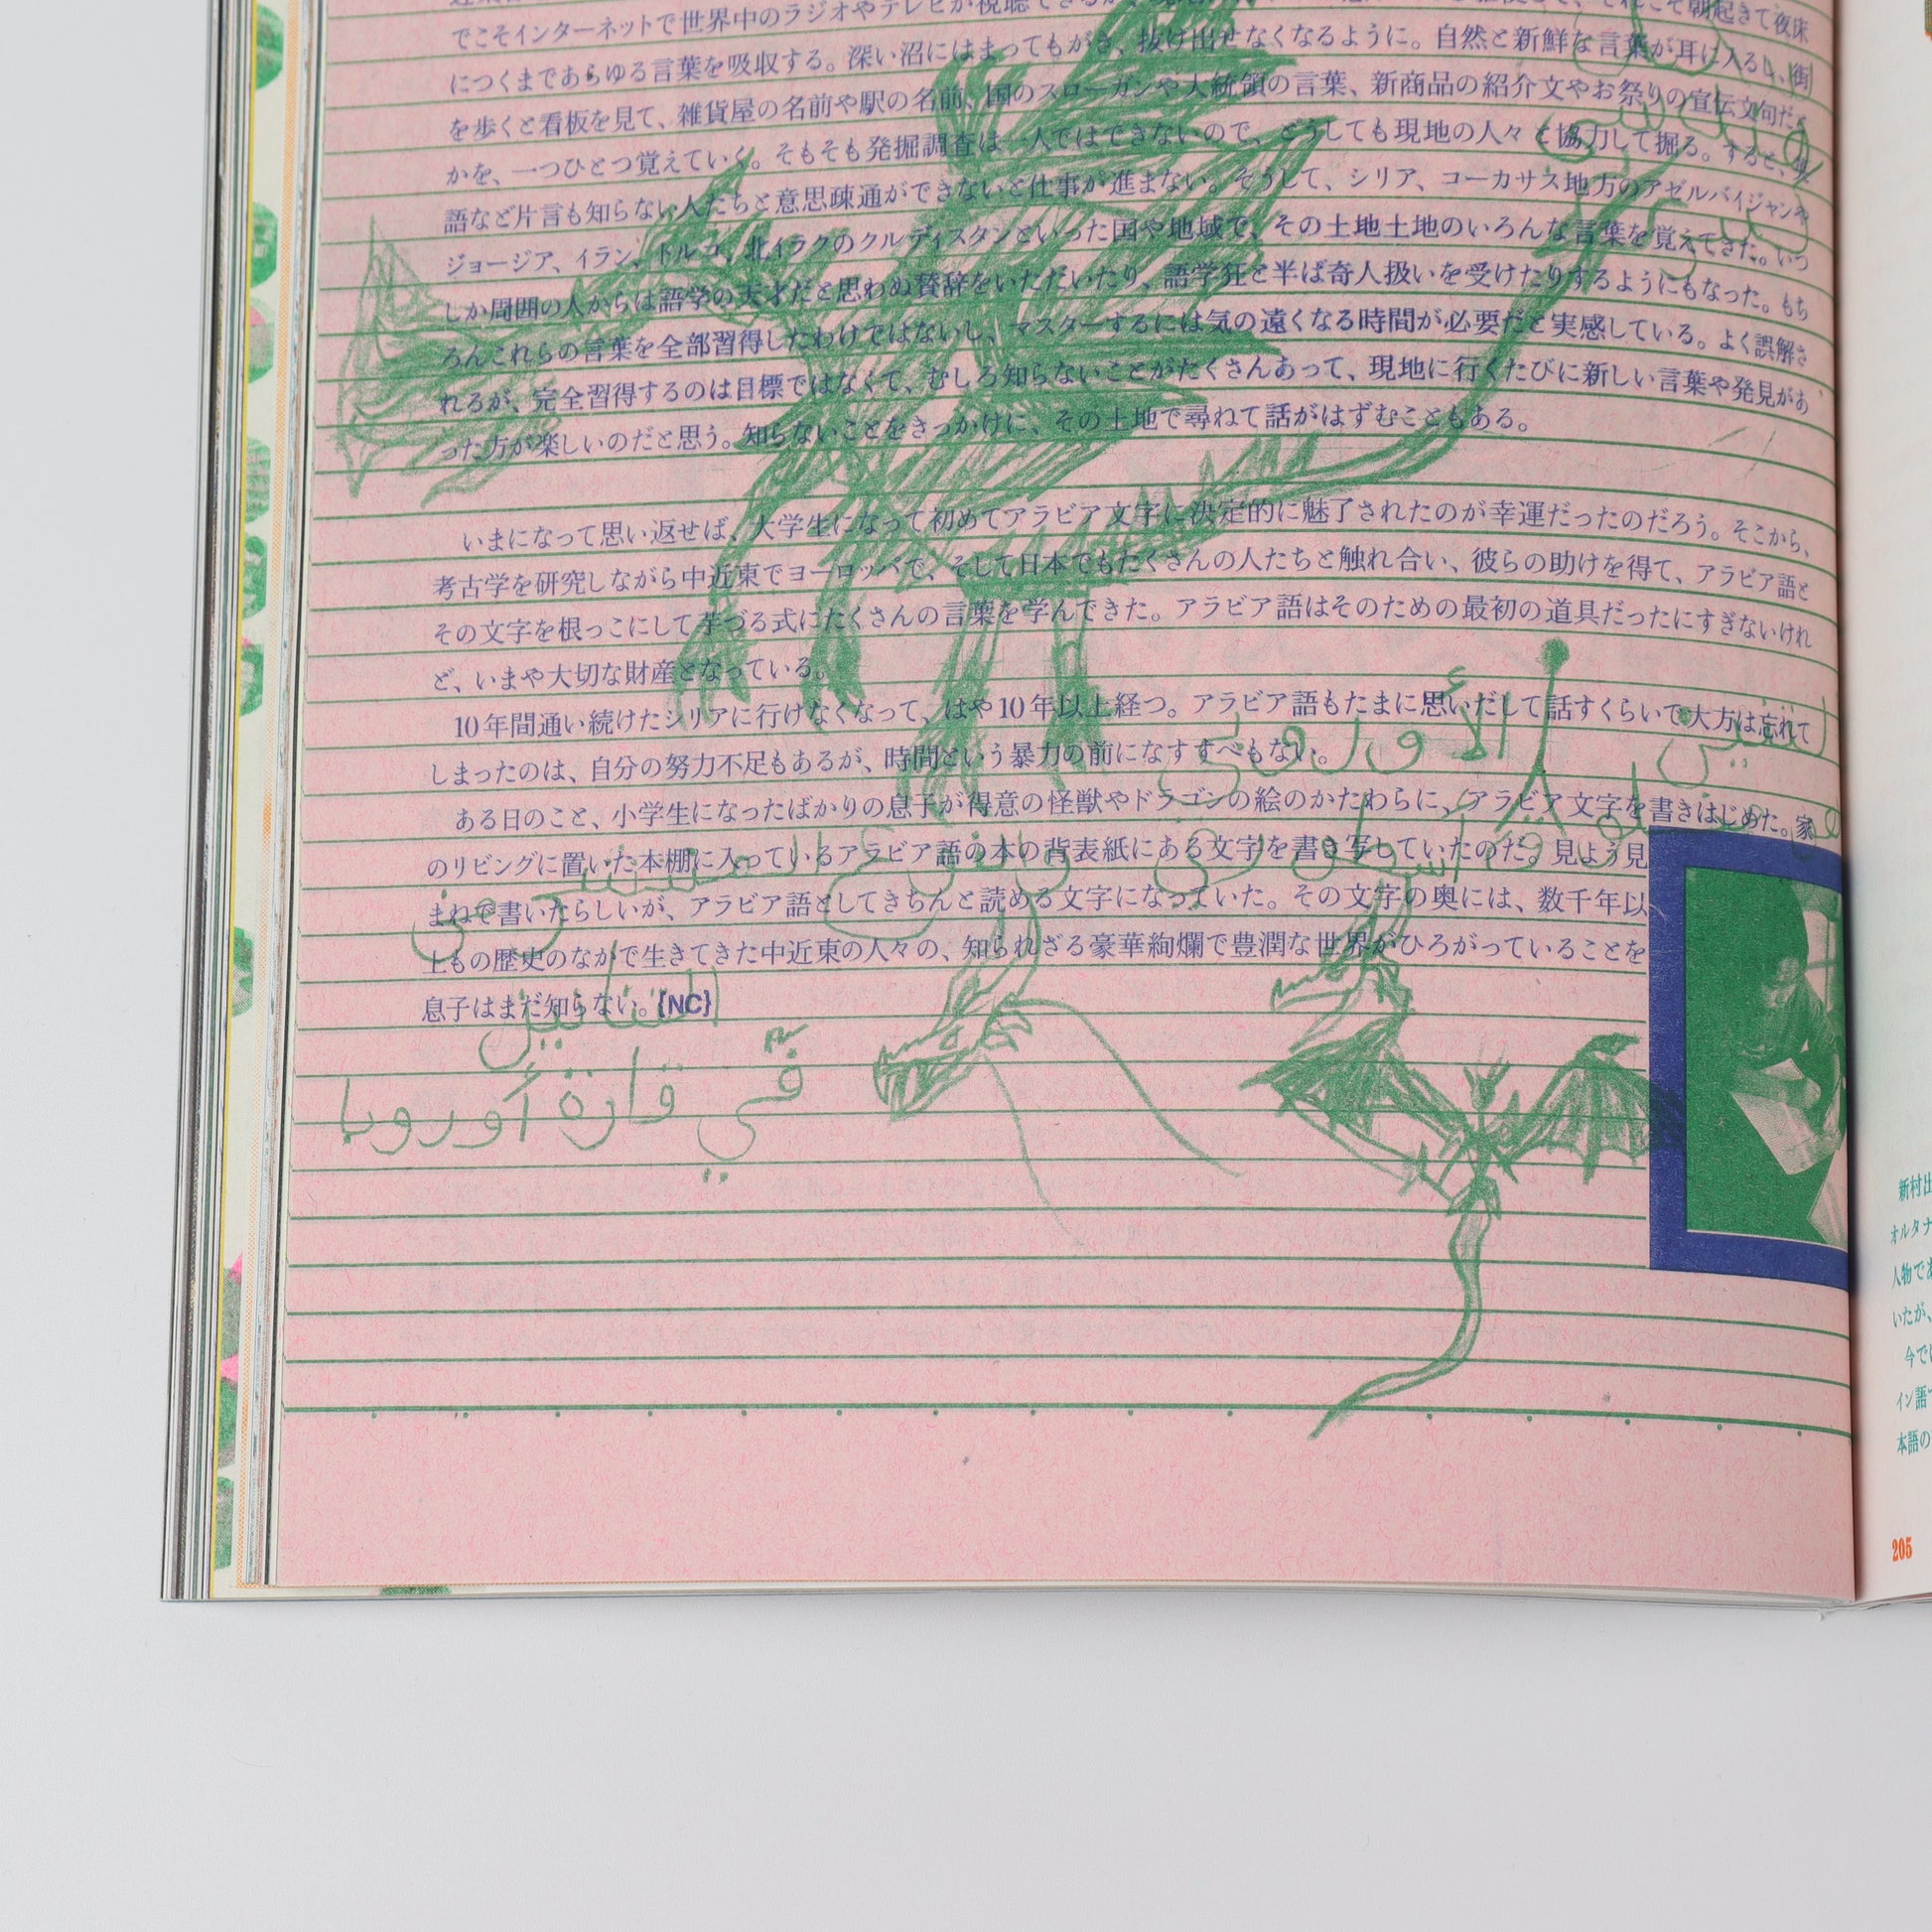 でこそインターネットで世界中のラジオやテレビが視聴できるが、
につくまであらゆる言葉を吸収する。深い沼にはまってもがき、抜け出せなくなるように。自然と新鮮な言葉が耳に入るし、街
を歩くと看板を見て、雑貨屋の名前や駅の名前、国のスローガンや大統領の言葉、新商品の紹介文やお祭りの宣伝文句だと
かを、一つひとつ覚えていく。そもそも発掘調査は一人ではできないので、どうしても現地の人々と協力して掘る。すると、
語など片言も知らない人たちと意思疎通ができないと仕事が進まない。そうして、シリア、コーカサス地方のアゼルバイジャンや
ジョージア、イラン、トルコ、北イラクのクルディスタンといった国や地域で、その土地土地のいろんな言葉を覚えてきた。いつ
しか周囲の人からは語学の天才だと思わぬ賛辞をいただいたり、語学狂と半ば奇人扱いを受けたりするようにもなった。もち
ろんこれらの言葉を全部習得したわけではないし、マスターするには気の遠くなる時間が必要だと実感している。よく誤解さ
れるが、完全習得するのは目標ではなくて、むしろ知らないことがたくさんあって、現地に行くたびに新しい言葉や発見があ
った方が楽しいのだと思う。知らないことをきっかけに、その土地で尋ねて話がはずむこともある。
いまになって思い返せば、大学生になって初めてアラビア文字に決定的に魅了されたのが幸運だったのだろう。そこから、
考古学を研究しながら中近東でヨーロッパで、そして日本でもたくさんの人たちと触れ合い、彼らの助けを得て、アラビア語と
その文字を根っこにして芋づる式にたくさんの言葉を学んできた。アラビア語はそのための最初の道具だったにすぎないけれ
ど、いまや大切な財産となっている。
10年間通い続けたシリアに行けなくなって、はや10年以上経つ。アラビア語もたまに思いだして話すくらいで大方は忘れて
しまったのは、自分の努力不足もあるが、時間という暴力の前になすすべもない。
ある日のこと、小学生になったばかりの息子が得意の怪獣やドラゴンの絵のかたわらに、アラビア文字を書きはじめた。家
のリビングに置いた本棚に入っているアラビア語の本の背表紙にある文字を書き写していたのだ。見よう見
まねで書いたらしいが、アラビア語としてきちんと読める文字になっていた。その文字の奥には、数千年以
上もの歴史のなかで生きてきた中近東の人々の、知られざる豪華絢爛で豊潤な世界がひろがっていることを
息子はまだ知らない。{NC}
في قارة أوروبا
新村出
オルタナ
人物であ
いたが、
今では
イン語
本語の
205